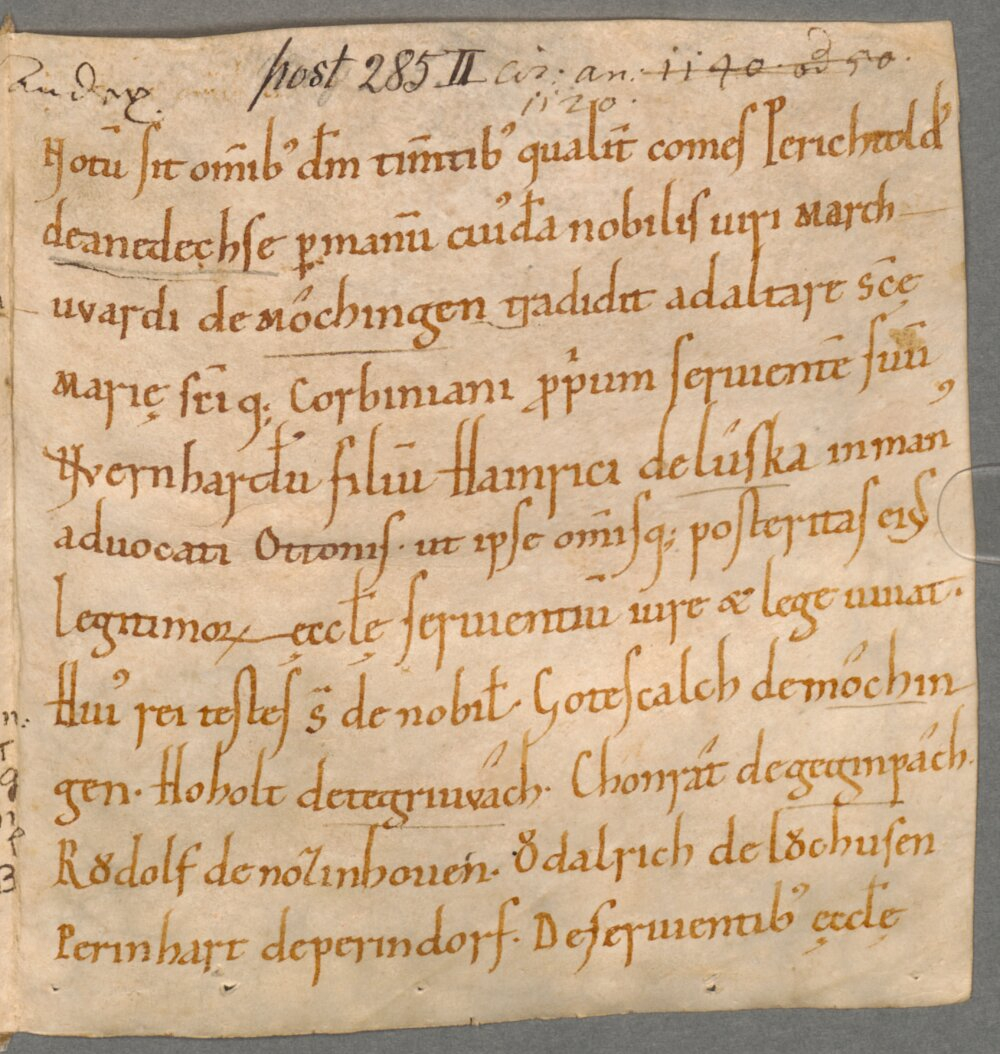 Andex. post 285 II cir: an: 1140 od 50.
1120.
Notū sit om̄ib' dm̄ tim̄tib' qualit̄ comes Perichtold'
deanedęchse ꝑmanū cuiu'dā nobilis uiri March
uvardi de Mochingen tradidit adaltare sc̄ę
Marię sc̄iq; Corbiniani ꝓpium seruientē suū
VVernhardū filiū Hainrici deluska inman'
aduocati Ottonis. ut ipse om̄isq; posteritas ei'
legitimoꝝ ęccłę seruientiū iure & lege uiuat.
Hui' rei testes s̄ de nobił. Gotescalch demochin
gen. Hoholt detegriuvach. Chonrat degeginpach.
Rǒdolf de nozinhouen. Ǒdalrich de lǒchusen
Perinhart deperindorf. Deseruientib' ęccłę